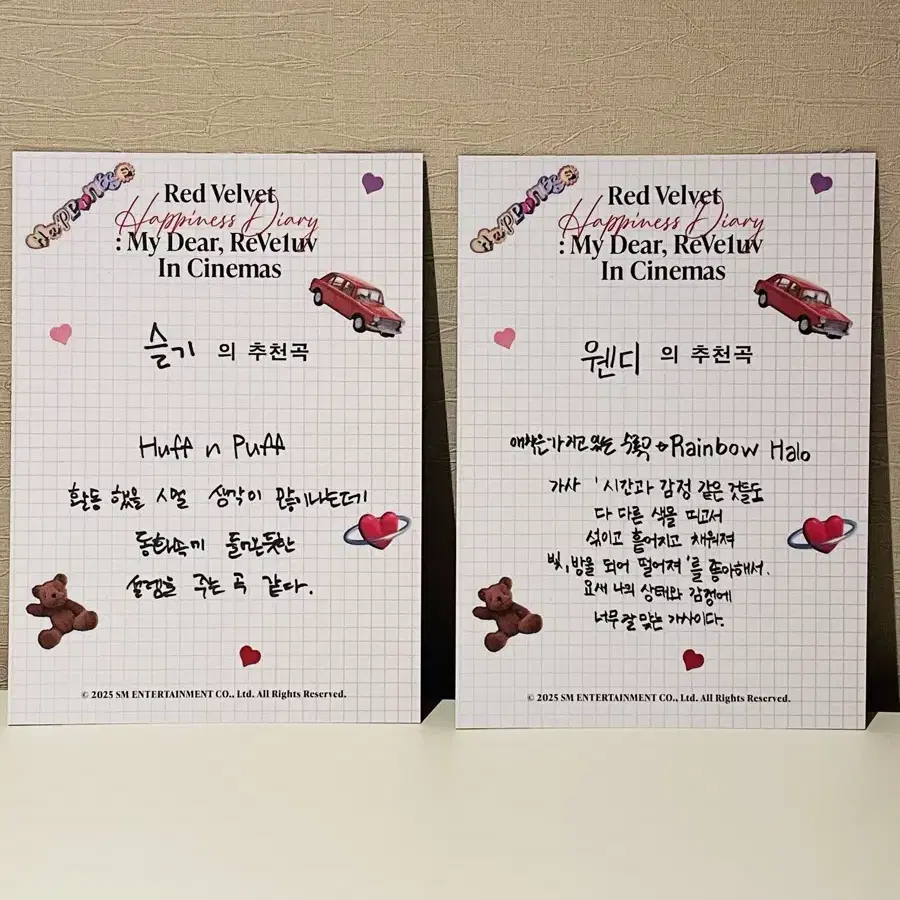 HAPPINESS
Red Velvet
Happiness Diary
: My Dear, ReVe1uv
In Cinemas
슬기 의 추천곡
Huff n Puff
활동 했을 시절 생각이 많이나는데
동화속에 들어간듯한
설렘을 주는 곡 같다.
© 2025 SM ENTERTAINMENT CO., Ltd. All Rights Reserved.
HAPPINESS
Red Velvet
Happiness Diary
: My Dear, ReVe1uv
In Cinemas
웬디 의 추천곡
애착은 가지고 있는 수록곡 Rainbow Halo
가사 '시간과 감정 같은 것들도
다 다른 색을 띠고서
섞이고 흩어지고 채워져
빛,방울 되어 떨어져'를 좋아해서.
요새 나의 상태와 감정에
너무 잘 맞는 가사이다.
© 2025 SM ENTERTAINMENT CO., Ltd. All Rights Reserved.